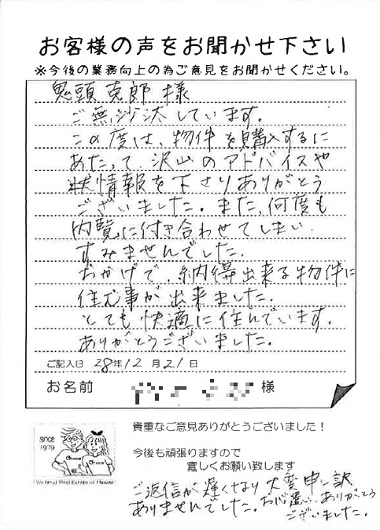 お客様の声をお聞かせ下さい
※今後の業務向上の為ご意見をお聞かせください。
鬼頭克郎様
ご無沙汰しています。
この度は、物件を購入するに
あたって、沢山のアドバイスや
情報を下さりありがとう
ございました。また、何度も
内覧に付き合わせてしまい
すみませんでした。
おかげで、納得出来る物件に
住む事が出来ました。
とても快適に住んでいます。
ありがとうございました。
ご記入日 28年12月21日
お名前 様
since
1979
貴重なご意見ありがとうございました!
今後も頑張りますので
宜しくお願い致します
ご返信が遅くなり大変申し訳
ありませんでした。お心遣いありがとう
ございました。